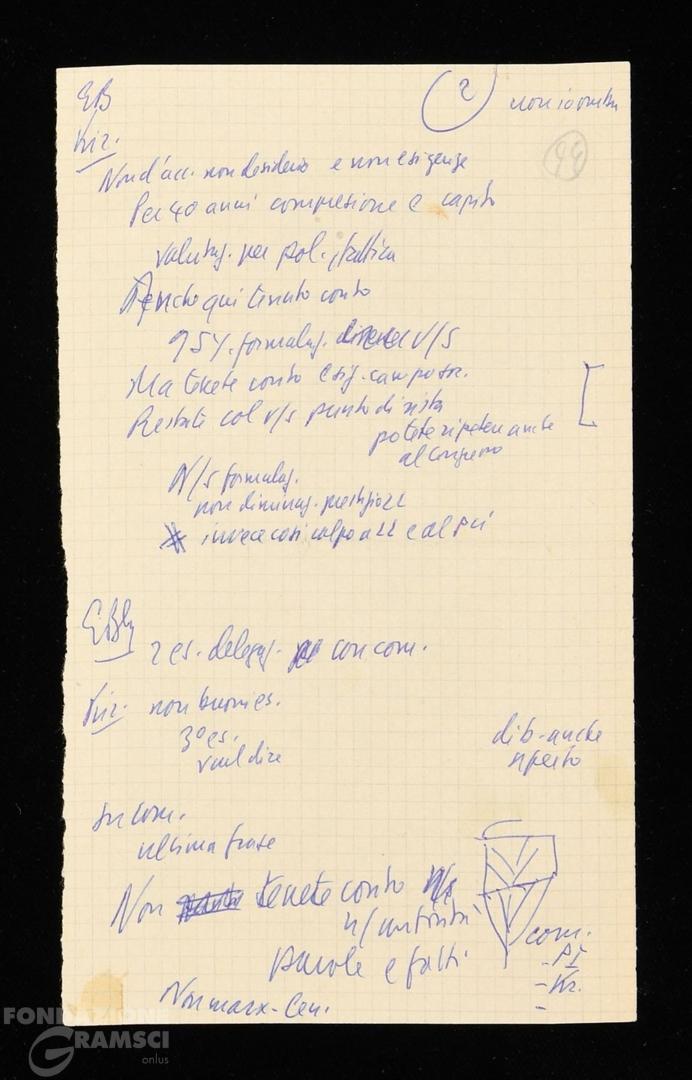 EB
2
99
Kir.
Nond'acc. non desiderio e non esigenze
Per 40 anni compresione e capito
valutaz. per pol. /tattica
qui tenuto conto
95%. formulaz. v/s
Ma tenete conto esig.
Restate col v/s punto di vista
potete ripetere anche
al Congresso
N/s formulaz.
non diminuz. prestigio
invece così colpo a LL e al PCI
EB
2 es. delegaz. con com.
Kir. non buoni es.
3º es.
vuol dire
dib. anche
aperto
Su com.
ultima frase
Non tenete conto
parole e fatti
com.
- PI
- Kr.
-
Non marx-len.
FONDAZIONE
GRAMSCI
onlus